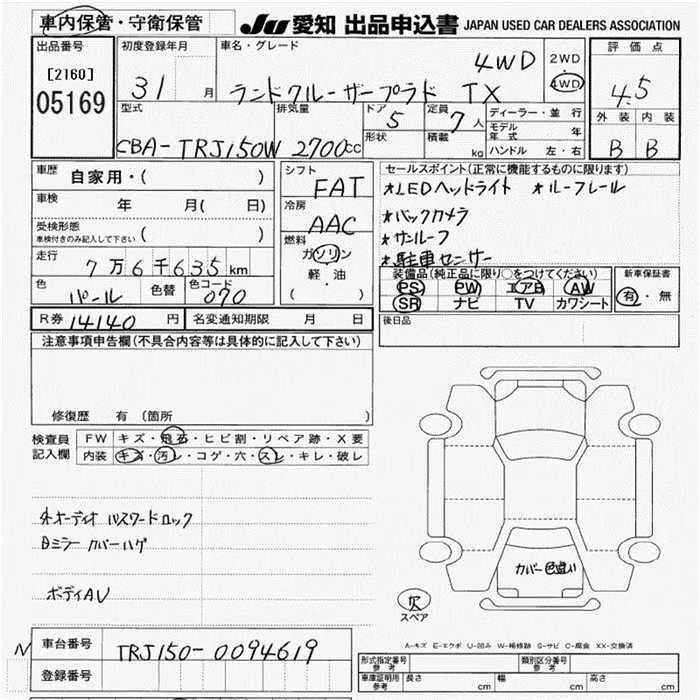 車内保管・守衛保管
JU 愛知 出品申込書 JAPAN USED CAR DEALERS ASSOCIATION
出品番号
[2160]
05169
初度登録年月
31 月
車名・グレード
ランドクルーザープラド TX 4WD
2WD
・
4WD
評価点
4.5
外装 内装
B B
型式
CBA-TRJ150W
排気量
2700cc
ドア
5
形状
定員
7人
積載
kg
ディーラー・並行
モデル年式 年
ハンドル 左・右
車歴 自家用・( )
車検 年 月( 日)
受検形態
車検付きのみ記入して下さい ( )
走行 7万6千635km
色 パール 色替 色コード 070
シフト
FAT
冷房
AAC
燃料
ガソリン
軽・油
( )
セールスポイント(正常に機能するものに限ります)
*LEDヘッドライト *ルーフレール
*バックカメラ
*サンルーフ
*駐車センサー
装備品(純正品に限り○をつけてください)
PS PW エアB AW
SR ナビ TV カワシート
新車保証書
有・無
R券 14140 円 名変通知期限 月 日
後日品
注意事項申告欄(不具合内容等は具体的に記入して下さい)
修復歴 有 (箇所 )
検査員記入欄
FW キズ・飛石・ヒビ割・リペア跡・X要
内装 キズ・汚レ・コゲ・穴・スレ・キレ・破レ
外オーディオ パスワードロック
Dミラー カバーハゲ
ボディAU
カバー色違い
欠
スペア
A-キズ E-エクボ U-凹み W-補修跡 S-サビ C-腐食 XX-交換済
N
車台番号 TRJ150-0094619
登録番号
形式指定番号
参考
類別区分番号
参考
車庫証明用
参考
長さ cm 幅 cm 高さ cm